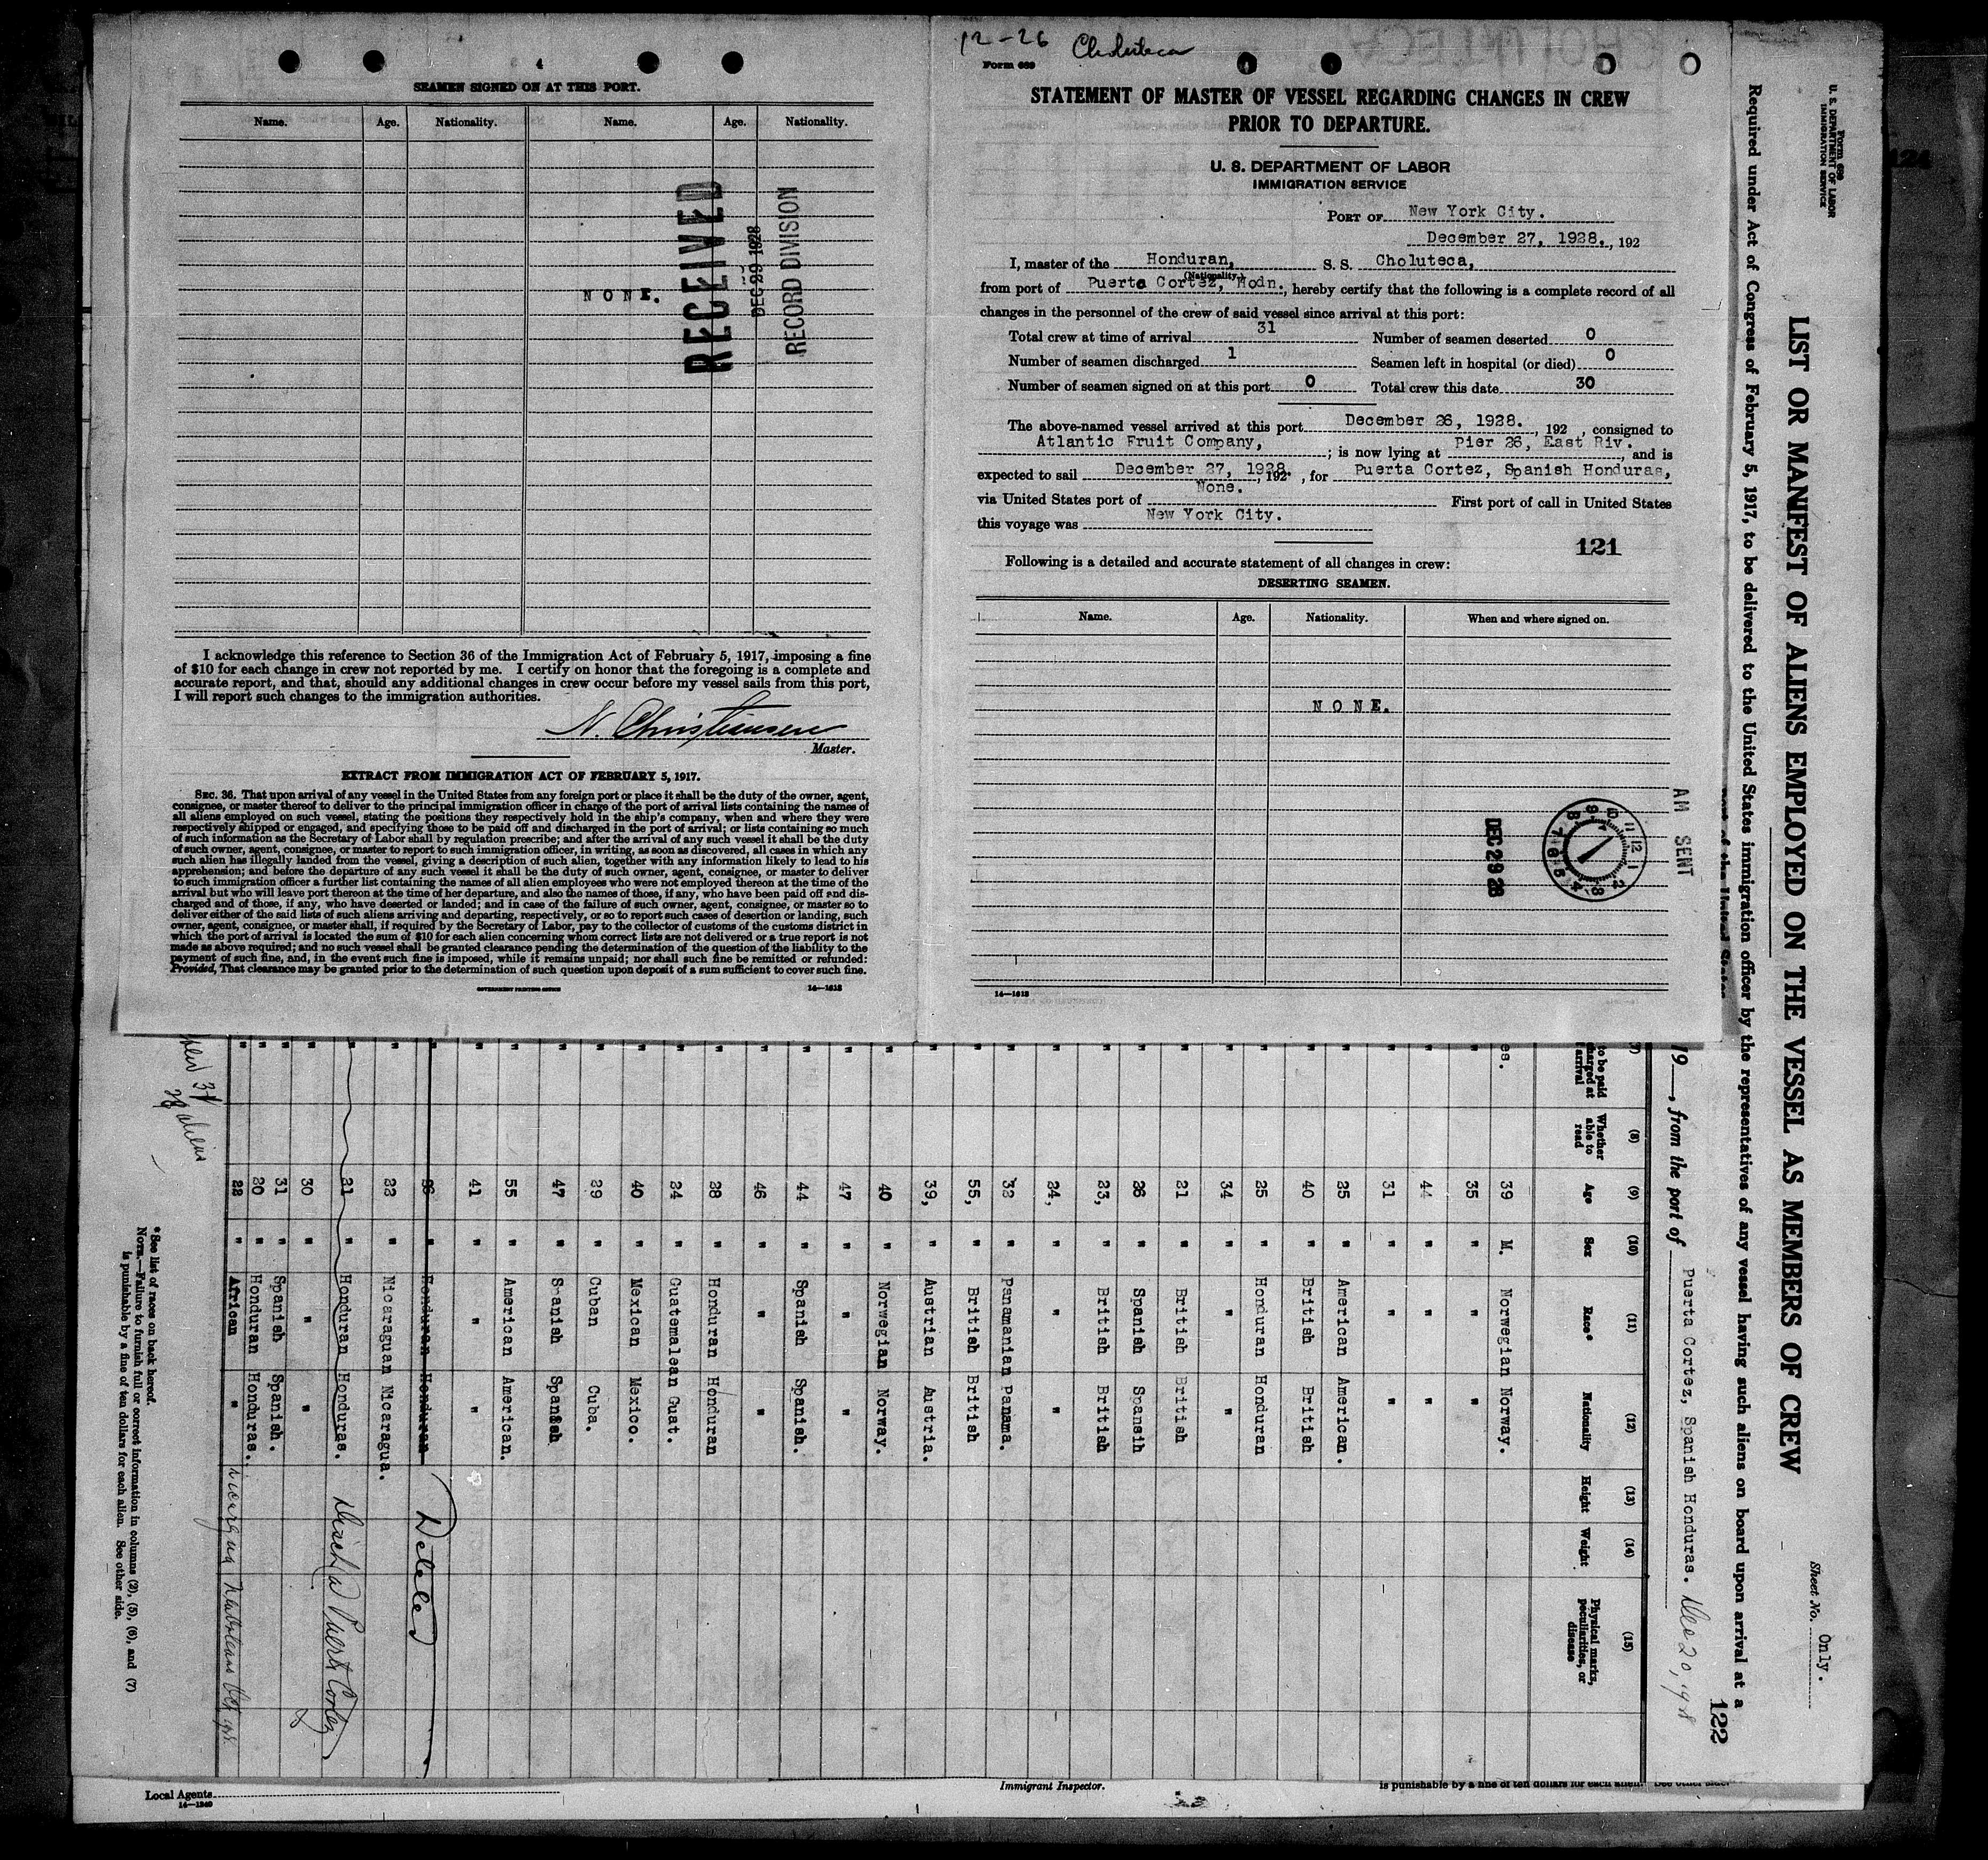 4
SEAMEN SIGNED ON AT THIS PORT.
Name. Age. Nationality. Name. Age. Nationality.
N O N E.
RECEIVED
DEC 29 1928
RECORD DIVISION
I acknowledge this reference to Section 36 of the Immigration Act of February 5, 1917, imposing a fine
of $10 for each change in crew not reported by me. I certify on honor that the foregoing is a complete and
accurate report, and that, should any additional changes in crew occur before my vessel sails from this port,
I will report such changes to the immigration authorities.
N. Christiansen
Master.
EXTRACT FROM IMMIGRATION ACT OF FEBRUARY 5, 1917.
SEC. 36. That upon arrival of any vessel in the United States from any foreign port or place it shall be the duty of the owner, agent,
consignee, or master thereof to deliver to the principal immigration officer in charge of the port of arrival lists containing the names of
all aliens employed on such vessel, stating the positions they respectively hold in the ship's company, when and where they were
respectively shipped or engaged, and specifying those to be paid off and discharged in the port of arrival; or lists containing so much
of such information as the Secretary of Labor shall by regulation prescribe; and after the arrival of any such vessel it shall be the duty
of such owner, agent, consignee, or master to report to such immigration officer, in writing, as soon as discovered, all cases in which any
such alien has illegally landed from the vessel, giving a description of such alien, together with any information likely to lead to his
apprehension; and before the departure of any such vessel it shall be the duty of such owner, agent, consignee, or master to deliver
to such immigration officer a further list containing the names of all alien employees who were not employed thereon at the time of the
arrival but who will leave port thereon at the time of her departure, and also the names of those, if any, who have been paid off and dis-
charged and of those, if any, who have deserted or landed; and in case of the failure of such owner, agent, consignee, or master so to
deliver either of the said lists of such aliens arriving and departing, respectively, or so to report such cases of desertion or landing, such
owner, agent, consignee, or master shall, if required by the Secretary of Labor, pay to the collector of customs of the customs district in
which the port of arrival is located the sum of $10 for each alien concerning whom correct lists are not delivered or a true report is not
made as above required; and no such vessel shall be granted clearance pending the determination of the question of the liability to the
payment of such fine, and, in the event such fine is imposed, while it remains unpaid; nor shall such fine be remitted or refunded:
Provided, That clearance may be granted prior to the determination of such question upon deposit of a sum sufficient to cover such fine.
GOVERNMENT PRINTING OFFICE 14—1618
12-26 Choluteca
Form 689
STATEMENT OF MASTER OF VESSEL REGARDING CHANGES IN CREW
PRIOR TO DEPARTURE.
U. S. DEPARTMENT OF LABOR
IMMIGRATION SERVICE
PORT OF New York City.
December 27, 1928. , 192
I, master of the Honduran, S. S. Choluteca,
(Nationality.)
from port of Puerta Cortez, Hodn. , hereby certify that the following is a complete record of all
changes in the personnel of the crew of said vessel since arrival at this port:
Total crew at time of arrival 31 Number of seamen deserted 0
Number of seamen discharged 1 Seamen left in hospital (or died) 0
Number of seamen signed on at this port 0 Total crew this date 30
The above-named vessel arrived at this port December 26, 1928. , 192 , consigned to
Atlantic Fruit Company, ; is now lying at Pier 26, East Riv. , and is
expected to sail December 27, 1928. , 192 , for Puerta Cortez, Spanish Honduras,
via United States port of None. First port of call in United States
this voyage was New York City.
121
Following is a detailed and accurate statement of all changes in crew:
DESERTING SEAMEN.
Name. Age. Nationality. When and where signed on.
N O N E.
DEC 29 28
AM SENT
14—1618
Form 689
U. S. DEPARTMENT OF LABOR
IMMIGRATION SERVICE
Sheet No. Only.
LIST OR MANIFEST OF ALIENS EMPLOYED ON THE VESSEL AS MEMBERS OF CREW
Required under Act of Congress of February 5, 1917, to be delivered to the United States immigration officer by the representatives of any vessel having such aliens on board upon arrival at a
122
19 , from the port of Puerta Cortez, Spanish Honduras. Dec 20, 1928
(7) (8) (9) (10) (11) (12) (13) (14) (15)
to be paid Whether able to read Age Sex Race* Nationality Height Weight Physical marks, peculiarities, or disease
39 M. Norwegian Norway.
35 " " "
44 " " "
31 " " "
25 " American American.
40 " British British
25 " Honduran Honduran
34 " " "
21 " British British
26 " Spanish Spansih
23, " British British
24, " " "
32 " Panamanian Panama.
55, " British British
39, " Austrian Austria.
40 " Norwegian Norway.
47 " " "
44 " Spanish Spanish.
46 " " "
28 " Honduran Honduran
24 " Guatemalean Guat.
40 " Mexican Mexico.
29 " Cuban Cuba.
47 " Spanish Spanish
55 " American American.
41 " " "
26 " Honduran Honduran Deleted
22 " Nicaraguan Nicaragua.
21 " Honduran Honduras. Disch'd Puert Cortez
30 " " "
31 " Spanish Spanish.
20 " Honduran Honduras.
22 " African "
*See list of races on back hereof.
NOTE.—Failure to furnish full or correct information in columns (2), (5), (6), and (7)
is punishable by a fine of ten dollars for each alien. See other side.
Local Agents
14—1240
Immigrant Inspector.
is punishable by a fine of ten dollars for each alien. See other side.